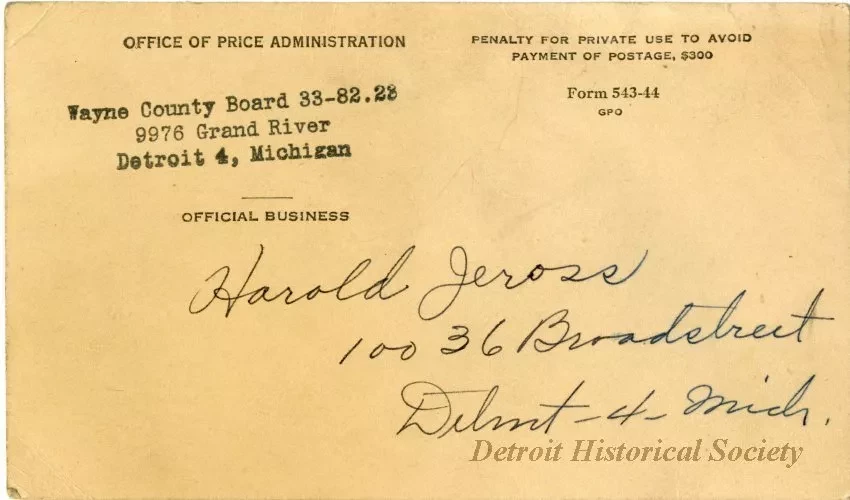 OFFICE OF PRICE ADMINISTRATION
Wayne County Board 33-82.28
9976 Grand River
Detroit 4, Michigan
OFFICIAL BUSINESS
PENALTY FOR PRIVATE USE TO AVOID
PAYMENT OF POSTAGE, $300
Form 543-44
GPO
Harold Jeross
100 36 Broadstreet
Detroit -4- Mich.
Detroit Historical Society